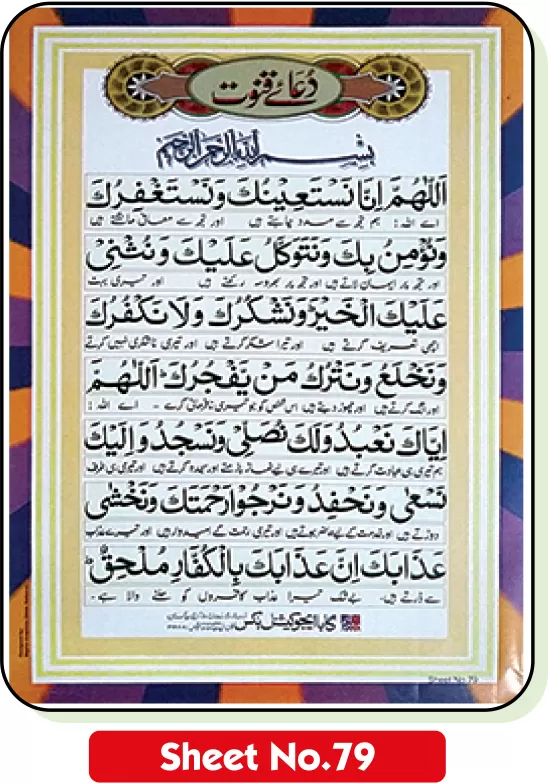 دُعَائے قنوت
بِسْمِ اللّٰهِ الرَّحْمٰنِ الرَّحِيْمِ
اَللّٰهُمَّ اِنَّا نَسْتَعِيْنُكَ وَنَسْتَغْفِرُكَ
اے اللہ! ہم تجھ سے مدد چاہتے ہیں اور تجھ سے معافی مانگتے ہیں
وَنُؤْمِنُ بِكَ وَنَتَوَكَّلُ عَلَيْكَ وَنُثْنِيْ
اور تجھ پر ایمان لاتے ہیں اور تجھ پر بھروسہ رکھتے ہیں اور تیری بہت
عَلَيْكَ الْخَيْرَ وَنَشْكُرُكَ وَلَا نَكْفُرُكَ
اچھی تعریف کرتے ہیں اور تیرا شکر کرتے ہیں اور تیری ناشکری نہیں کرتے
وَنَخْلَعُ وَنَتْرُكُ مَنْ يَّفْجُرُكَ اَللّٰهُمَّ
اور الگ کرتے ہیں اور چھوڑ دیتے ہیں اس شخص کو جو تیری نافرمانی کرے۔ اے اللہ!
اِيَّاكَ نَعْبُدُ وَلَكَ نُصَلِّيْ وَنَسْجُدُ وَاِلَيْكَ
ہم تیری ہی عبادت کرتے ہیں اور تیرے ہی لیے نماز پڑھتے اور سجدہ کرتے ہیں اور تیری ہی طرف
نَسْعٰى وَنَحْفِدُ وَنَرْجُوْا رَحْمَتَكَ وَنَخْشٰى
دوڑتے ہیں اور خدمت کے لیے حاضر ہوتے ہیں اور تیری رحمت کے امیدوار ہیں اور تیرے عذاب
عَذَابَكَ اِنَّ عَذَابَكَ بِالْكُفَّارِ مُلْحِقٌ
سے ڈرتے ہیں۔ بے شک تیرا عذاب کافروں کو ملنے والا ہے۔
بابا ایجوکیشنل بکس
Sheet No.79
Sheet No.79